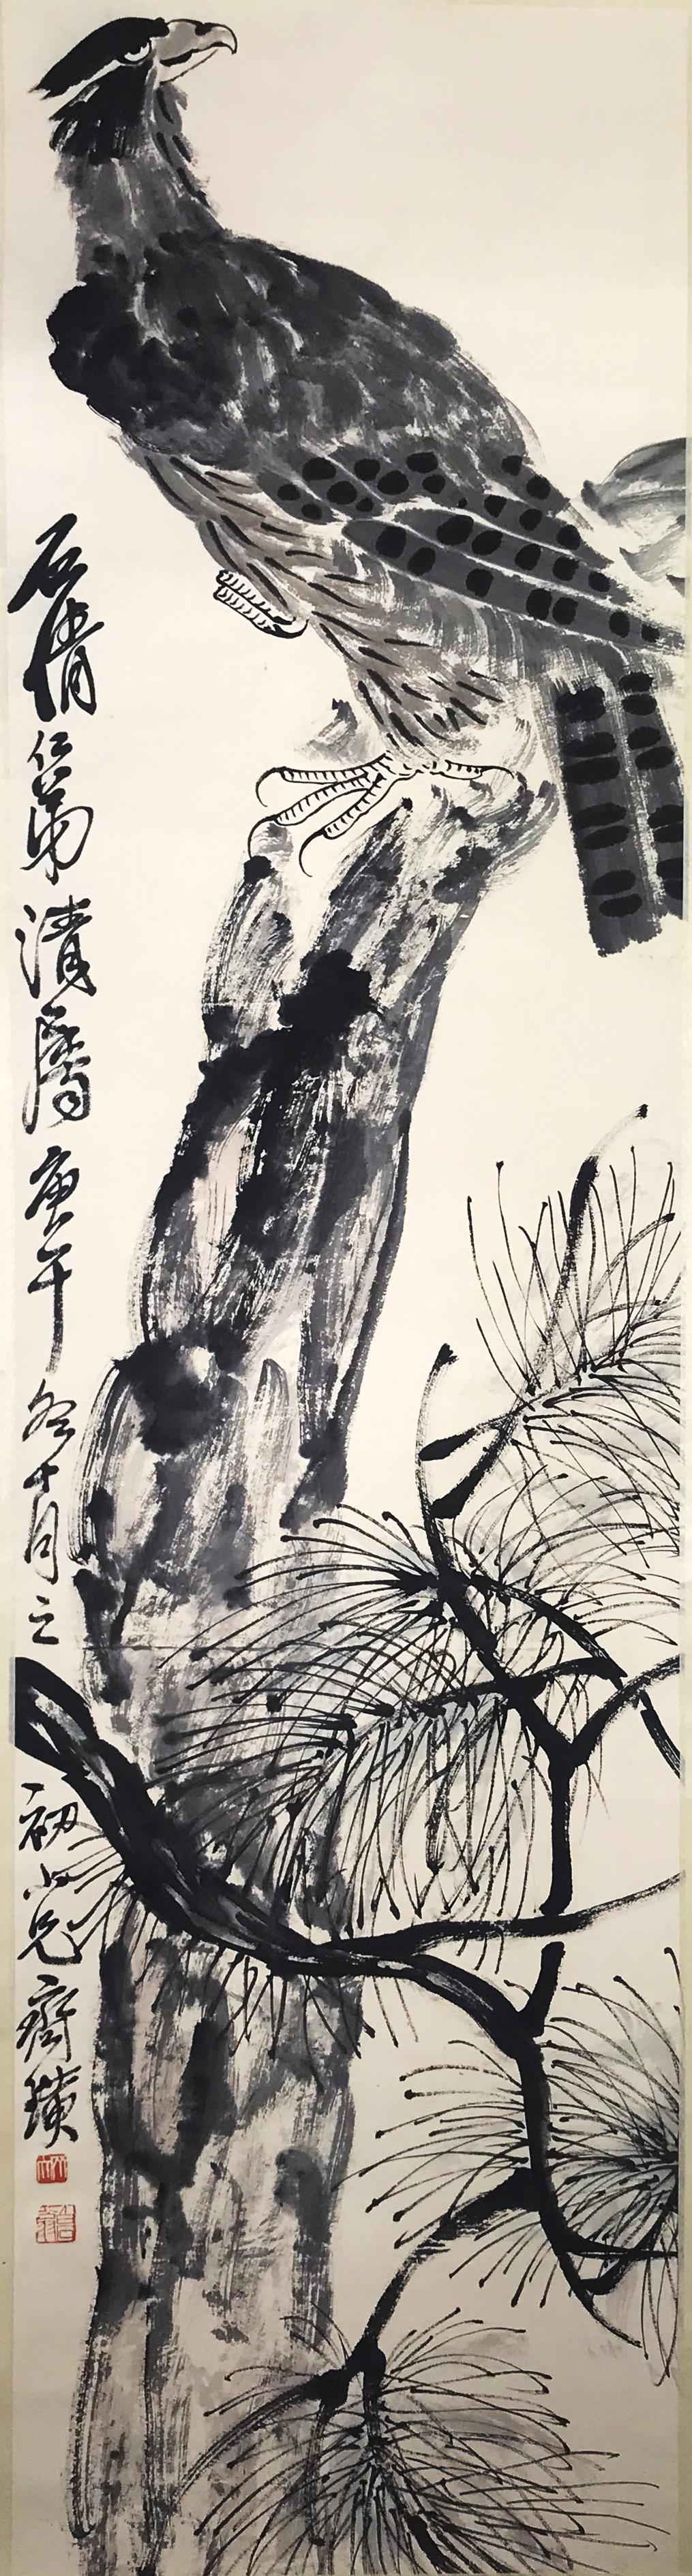 石倩仁弟清屬庚午冬十月之初小兄齊璜